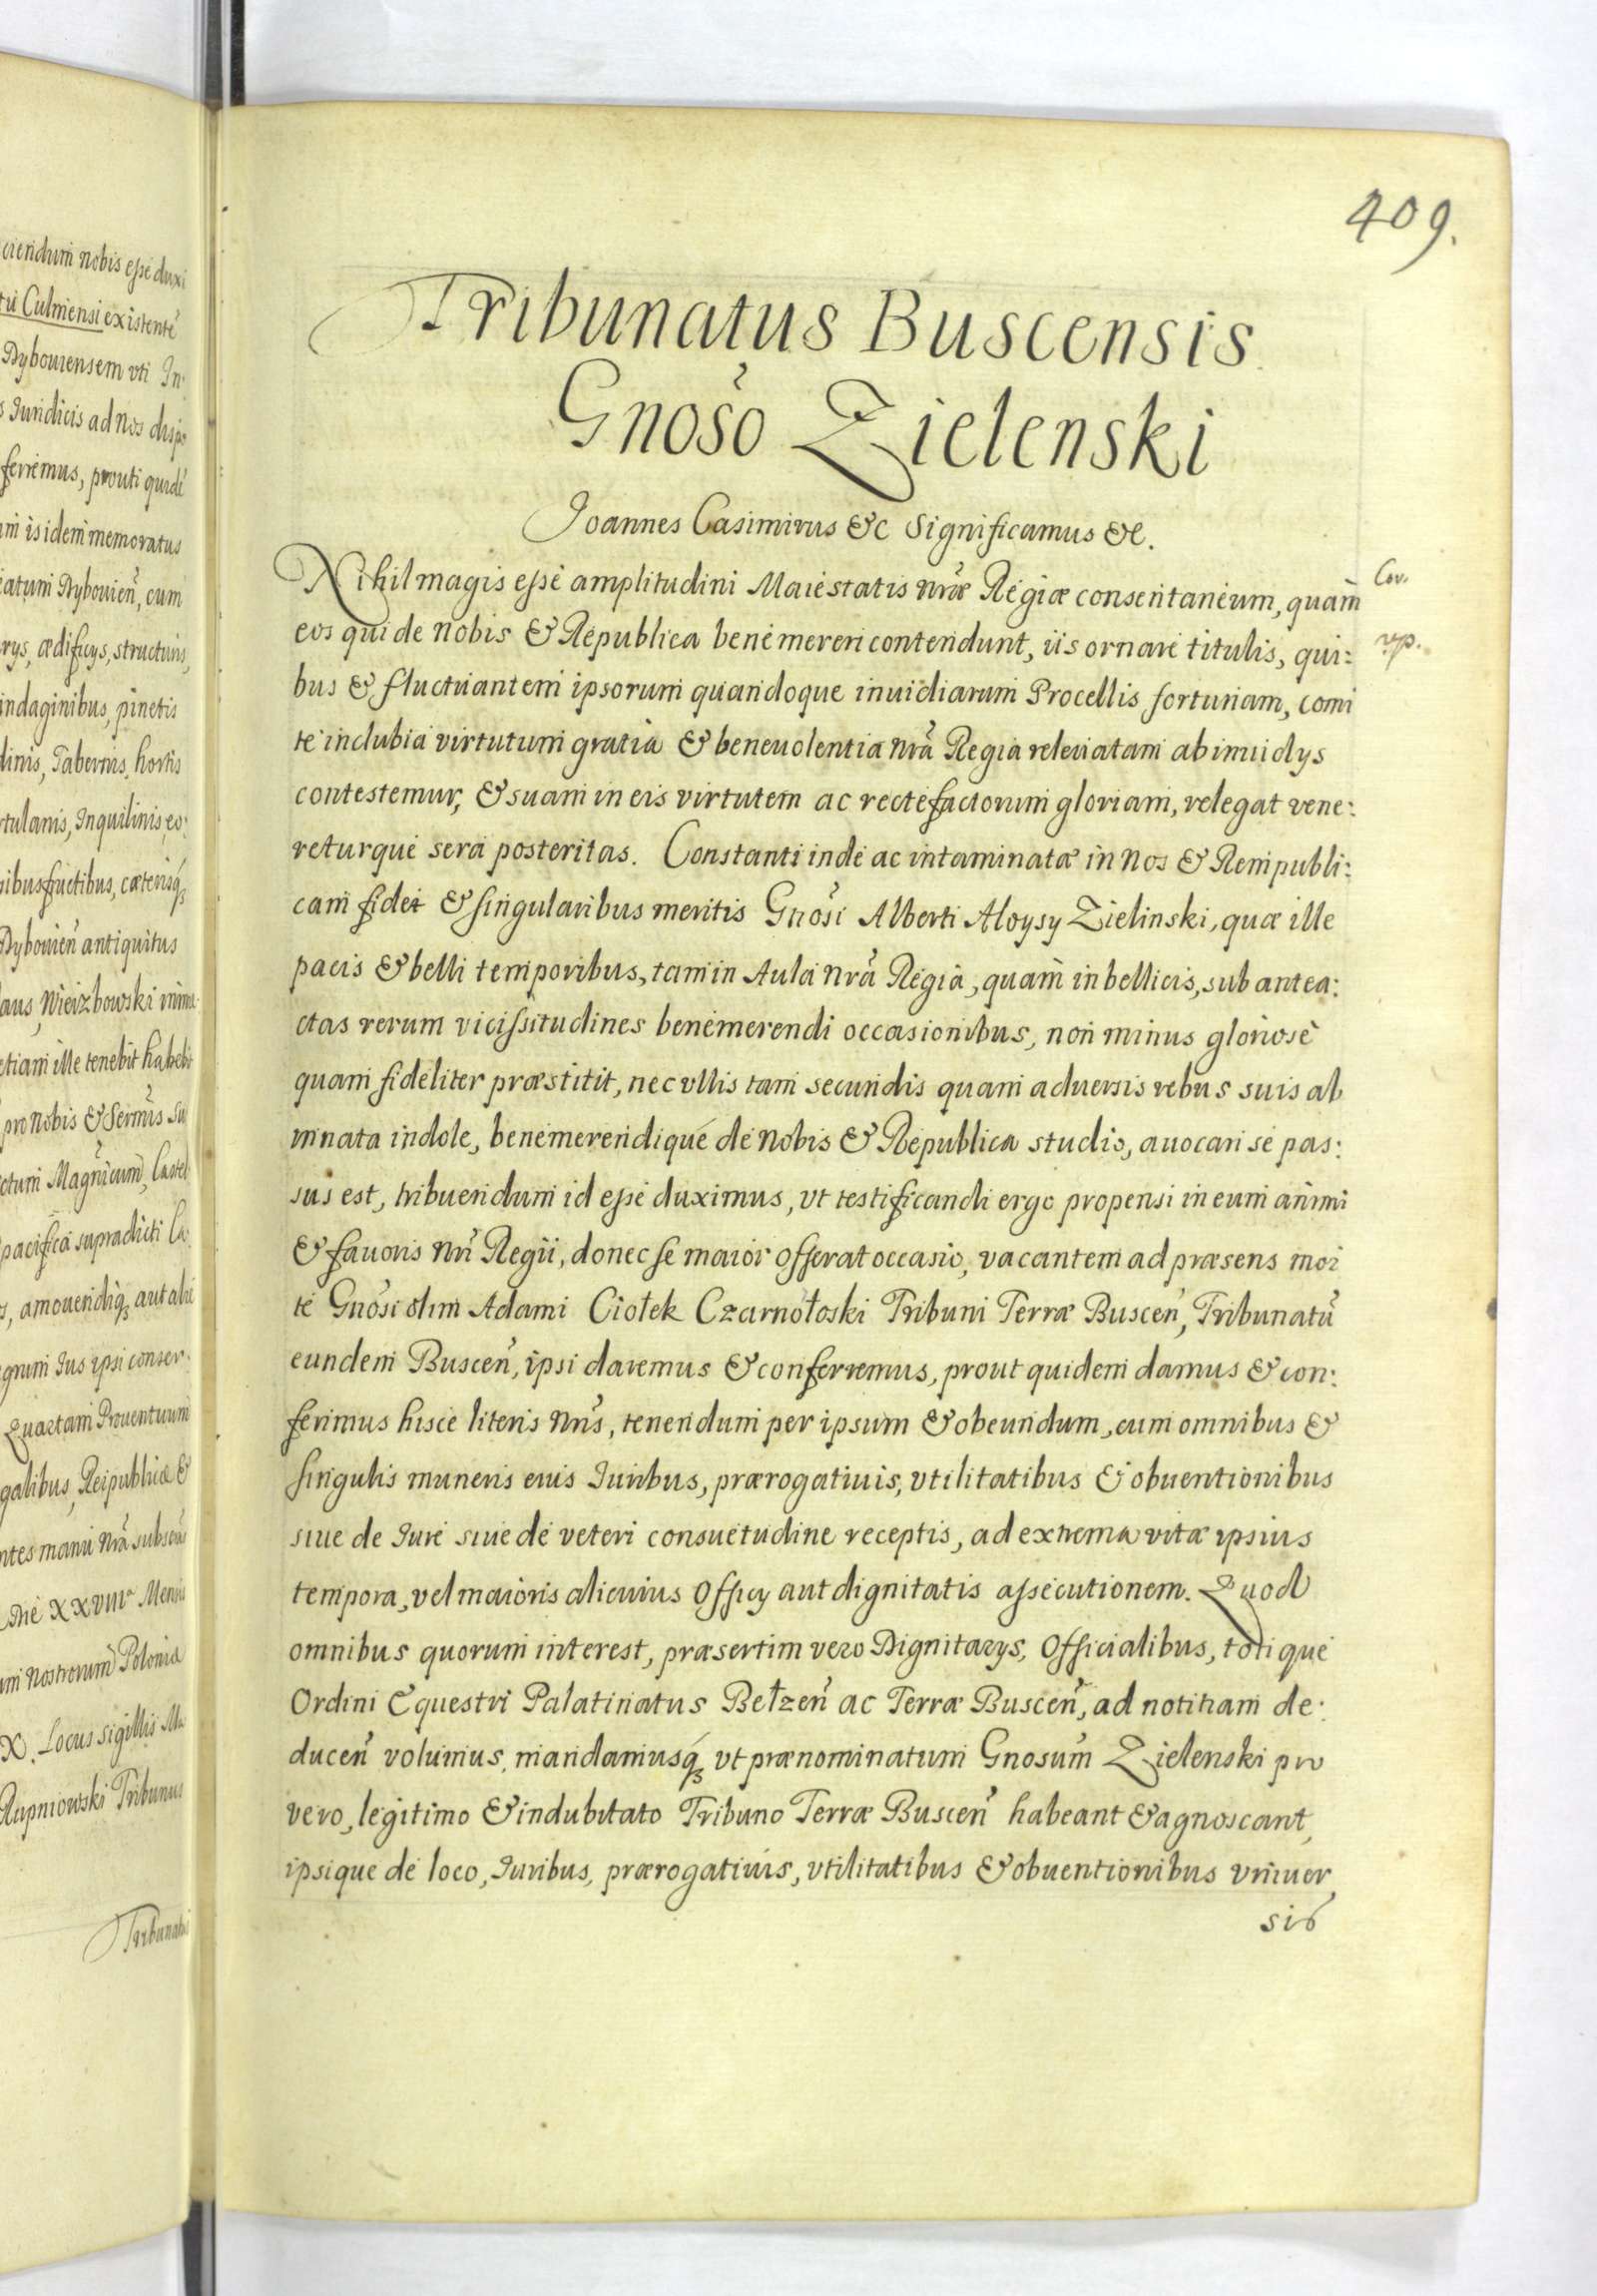 ciendum nobis esse duxi
tu Culmensi existente
Dybouiensem vti In:
s Iuridicis ad nos dispo
ferremus, prouti quidē
um is idem memoratus
catum Dybouien̄, cum
rys, ædificys, structuris,
indaginibus, pinetis
dinis, Tabernis, hortis
rtulanis, Inquilinis, eo:
nibus fructibus, cæterisq₃
Dybouien̄ antiquitus
laus Wieizbowski
etiam ille tenebit habebit
pro nobis & Sermis Su
ctum Magn̄icum, Castel
pacifica supradicti La:
s, amouendiq₃ aut abi
gnum Ius ipsi conser:
Quartam Prouentuum
galibus, Reipublicæ &
ntes manu nr̄a subscri
Die XXVIIIᵃ Mensis
um nostrorum Poloniæ
X. Locus sigillis Ma
Rupniowski Tribunus
Tribunatus
409.
Tribunatus Buscensis
Gnoso̅ Zielenski
Joannes Casimirus &c Significamus &c.
Nihil magis esse amplitudini Maiestatis nr̄æ Regiæ consentaneum, quam
Cor.
eos qui de nobis & Republica bene mereri contendunt, iis ornare titulis, qui:
rp.
bus & fluctuantem ipsorum quandoque inuidiarum Procellis fortunam, comi
te indubia virtutum gratia & beneuolentia nr̄a Regia releuatam ab inuidys
contestemur, & suam in eis virtutem ac recte factorum gloriam, relegat vene:
returque sera posteritas. Constanti inde ac intaminatæ in nos & Rempubli:
cam fidei & singularibus meritis Gnosi̅ Alberti Aloysy Zielinski, quæ ille
pacis & belli temporibus, tam in Aula nr̄a Regia, quam in bellicis, sub antea:
ctas rerum vicissitudines benemerendi occasionibus, non minus gloriosè
quam fideliter præstitit, nec vllis tam secundis quam aduersis rebus suis ab
innata indole, benemerendique de nobis & Republica studio, auocari se pas:
sus est, tribuendum id esse duximus, vt testificandi ergo propensi in eum animi
& fauoris nr̄i Regii, donec se maior offerat occasio, vacantem ad præsens mor
te Gnosi̅ olim Adami Ciołek Czarnołoski Tribuni Terræ Buscen̄, Tribunatū
eundem Buscen̄, ipsi daremus & conferremus, prout quidem damus & con:
ferimus hisce literis nr̄is, tenendum per ipsum & obeundum, cum omnibus &
singulis muneris eius Iuribus, prærogatiuis, vtilitatibus & obuentionibus
siue de Iure siue de veteri consuetudine receptis, ad extrema vitæ ipsius
tempora, vel maioris alicuius Officy aut dignitatis assecutionem. Quod
omnibus quorum interest, præsertim vero Dignitarys, Officialibus, totique
Ordini Equestri Palatinatus Bełzen̄ ac Terræ Buscen̄, ad notitiam de:
ducen̄ volumus, mandamusq₃ vt prænominatum Gnosum̅ Zielenski pro
vero, legitimo & indubitato Tribuno Terræ Buscen̄ habeant & agnoscant,
ipsique de loco, Iuribus, prærogatiuis, vtilitatibus & obuentionibus vniuer
sis